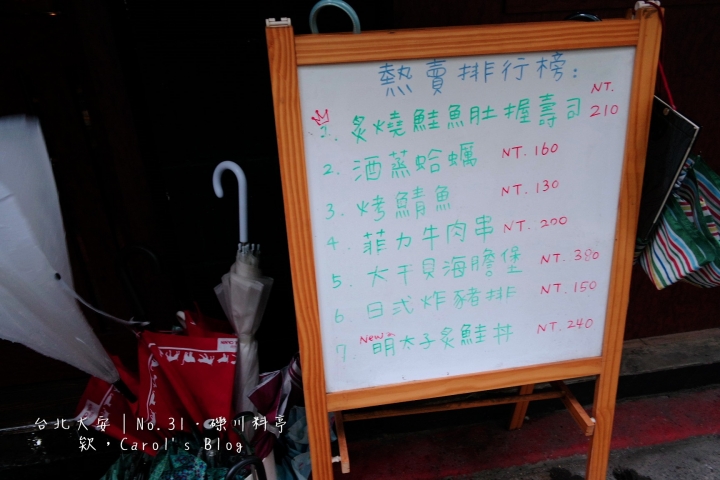 熱賣排行榜:
1. 炙燒鮭魚肚握壽司 NT. 210
2. 酒蒸蛤蠣 NT. 160
3. 烤鯖魚 NT. 130
4. 菲力牛肉串 NT. 200
5. 大干貝海膽堡 NT. 380
6. 日式炸豬排 NT. 150
7. New 明太子炙鮭丼 NT. 240
台北大安│No.31·礫川料亭
欸,Carol's Blog